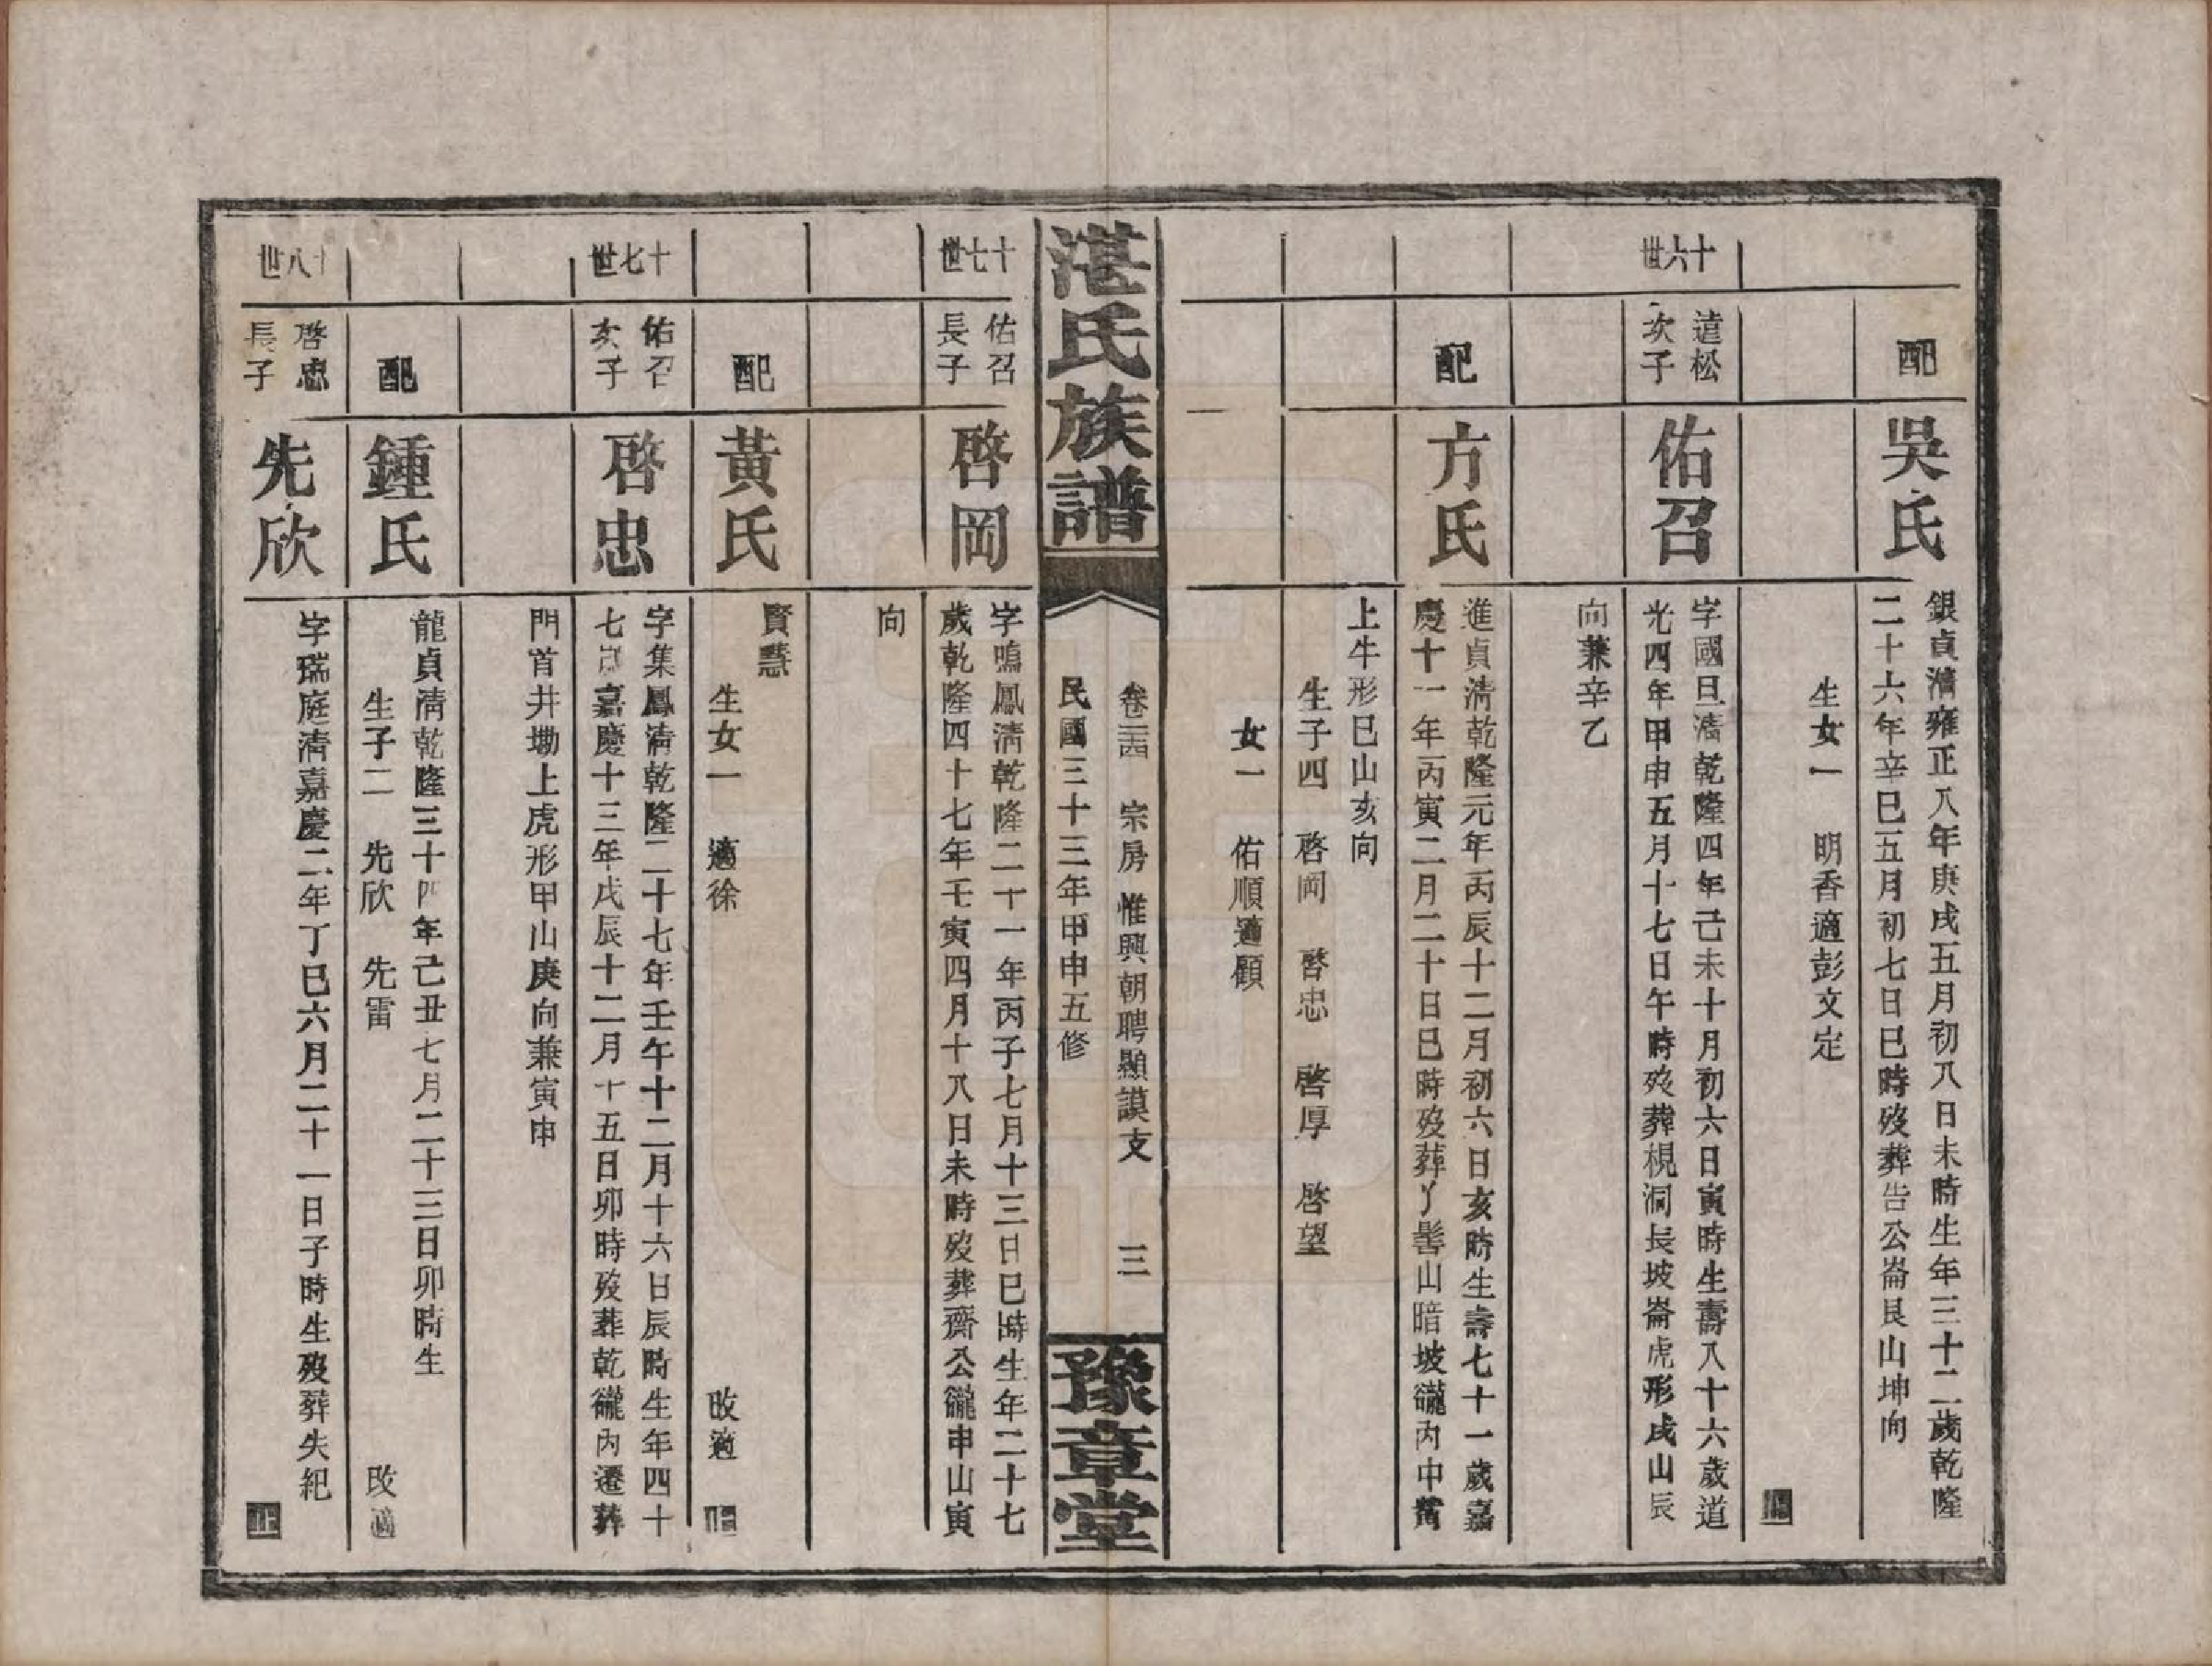 配
吳氏
銀貞清雍正八年庚戌五月初八日未時生年三十二歲乾隆
二十六年辛巳五月初七日巳時歿葬告公崙艮山坤向
生女一　明香適彭文定
止
十六世
遠松
次子
佑召
字國旦清乾隆四年己未十月初六日寅時生壽八十六歲道
光四年甲申五月十七日午時歿葬梘洞長坡崙虎形戌山辰
向兼辛乙
配
方氏
進貞清乾隆元年丙辰十二月初六日亥時生壽七十一歲嘉
慶十一年丙寅二月二十日巳時歿葬丫髻山暗坡隴內中黃
上牛形巳山亥向
生子四　啓岡　啓忠　啓厚　啓望
女一　佑順適顧
湛氏族譜
卷三四　宗房　惟興朝聘顯謨支　三
民國三十三年甲申五修
豫章堂
十七世
佑召
長子
啓岡
字鳴鳳清乾隆二十一年丙子七月十三日巳時生年二十七
歲乾隆四十七年壬寅四月十八日未時歿葬齋公隴申山寅
向
配
黃氏
賢慧
生女一　適徐　改適
止
十七世
佑召
次子
啓忠
字集鳳清乾隆二十七年壬午十二月十六日辰時生年四十
七歲嘉慶十三年戊辰十二月十五日卯時歿葬乾隴內遷葬
門首井墈上虎形甲山庚向兼寅申
配
鍾氏
龍貞清乾隆三十四年己丑七月二十三日卯時生
生子二　先欣　先雷　改適
十八世
啓忠
長子
先欣
字瑞庭清嘉慶二年丁巳六月二十一日子時生歿葬失紀
止